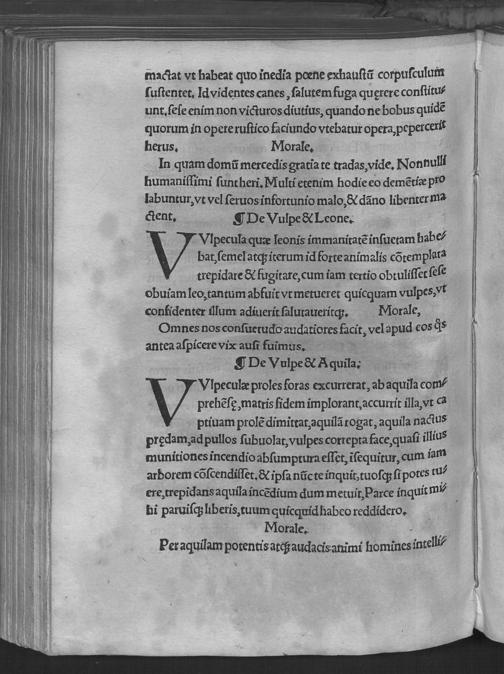 mactat vt habeat quo inedia pœne exhaustũ corpusculum
sustentet. Id videntes canes, salutem fuga quęrere constitu⸗
unt. sese enim non victuros diutius, quando ne bobus quidẽ
quorum in opere rustico faciundo vtebatur opera, pepercerit
herus. Morale.
In quam domũ mercedis gratia te tradas, vide. Nonnulli
humanissimi sunt heri. Multi etenim hodie eo demẽtiæ pro
labuntur, vt vel seruos infortunio malo, & dãno libenter ma
ctent. ¶ De Vulpe & Leone.
VVlpecula quæ leonis immanitatẽ insuetam habe⸗
bat, semel atqꝫ iterum id forte animalis cõtemplata
trepidare & fugitare, cum iam tertio obtulisset sese
obuiam leo, tantum abfuit vt metueret quicquam vulpes, vt
confidenter illum adiuerit salutaueritqꝫ. Morale,
Omnes nos consuetudo audatiores facit, vel apud eos q̃s
antea aspicere vix ausi fuimus.
¶ De Vulpe & Aquila:
VVlpeculæ proles foras excurrerat, ab aquila com⸗
prehẽsę, matris fidem implorant, accurrit illa, vt ca
ptiuam prolẽ dimittat, aquilã rogat, aquila nactus
prędam, ad pullos subuolat, vulpes correpta face, quasi illius
munitiones incendio absumptura esset, ĩsequitur, cum iam
arborem cõscendisset. & ipsa nũc te inquit, tuosqꝫ si potes tu⸗
ere, trepidans aquila incẽdium dum metuit, Parce inquit mi⸗
hi paruisqꝫ liberis, tuum quicquid habeo reddidero.
Morale.
Per aquilam potentis atqꝫ audacis animi homines intelli⸗